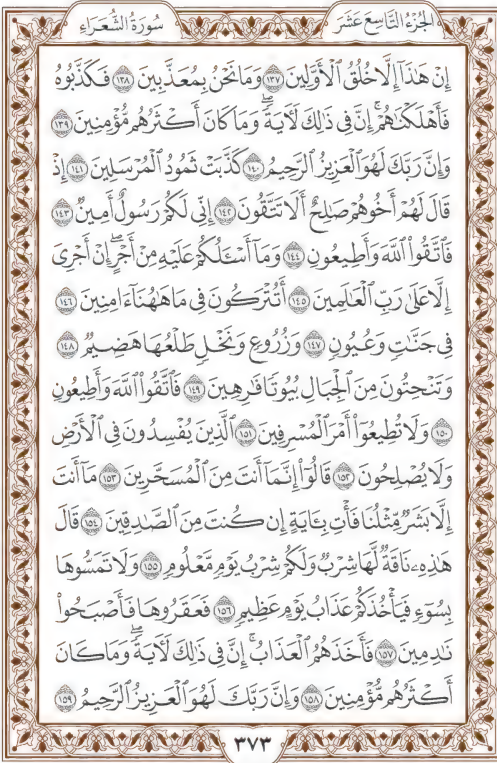 الجُزْءُ التَّاسِعَ عَشَرَ
سُورَةُ الشُّعَرَاءِ
إِنْ هَٰذَآ إِلَّا خُلُقُ ٱلْأَوَّلِينَ ١٣٧ وَمَا نَحْنُ بِمُعَذَّبِينَ ١٣٨ فَكَذَّبُوهُ
فَأَهْلَكْنَٰهُمْۚ إِنَّ فِى ذَٰلِكَ لَأٓيَةًۖ وَمَا كَانَ أَكْثَرُهُم مُّؤْمِنِينَ ١٣٩
وَإِنَّ رَبَّكَ لَهُوَ ٱلْعَزِيزُ ٱلرَّحِيمُ ١٤٠ كَذَّبَتْ ثَمُودُ ٱلْمُرْسَلِينَ ١٤١ إِذْ
قَالَ لَهُمْ أَخُوهُمْ صَٰلِحٌ أَلَا تَتَّقُونَ ١٤٢ إِنِّى لَكُمْ رَسُولٌ أَمِينٌ ١٤٣
فَٱتَّقُوا۟ ٱللَّهَ وَأَطِيعُونِ ١٤٤ وَمَآ أَسْـَٔلُكُمْ عَلَيْهِ مِنْ أَجْرٍۖ إِنْ أَجْرِىَ
إِلَّا عَلَىٰ رَبِّ ٱلْعَٰلَمِينَ ١٤٥ أَتُتْرَكُونَ فِى مَا هَٰهُنَآ ءَامِنِينَ ١٤٦
فِى جَنَّٰتٍ وَعُيُونٍ ١٤٧ وَزُرُوعٍ وَنَخْلٍ طَلْعُهَا هَضِيمٌ ١٤٨
وَتَنْحِتُونَ مِنَ ٱلْجِبَالِ بُيُوتًا فَٰرِهِينَ ١٤٩ فَٱتَّقُوا۟ ٱللَّهَ وَأَطِيعُونِ
١٥٠ وَلَا تُطِيعُوٓا۟ أَمْرَ ٱلْمُسْرِفِينَ ١٥١ ٱلَّذِينَ يُفْسِدُونَ فِى ٱلْأَرْضِ
وَلَا يُصْلِحُونَ ١٥٢ قَالُوٓا۟ إِنَّمَآ أَنتَ مِنَ ٱلْمُسَحَّرِينَ ١٥٣ مَآ أَنتَ
إِلَّا بَشَرٌ مِّثْلُنَا فَأْتِ بِـَٔايَةٍ إِن كُنتَ مِنَ ٱلصَّٰدِقِينَ ١٥٤ قَالَ
هَٰذِهِۦ نَاقَةٌ لَّهَا شِرْبٌ وَلَكُمْ شِرْبُ يَوْمٍ مَّعْلُومٍ ١٥٥ وَلَا تَمَسُّوهَا
بِسُوٓءٍ فَيَأْخُذَكُمْ عَذَابُ يَوْمٍ عَظِيمٍ ١٥٦ فَعَقَرُوهَا فَأَصْبَحُوا۟
نَٰدِمِينَ ١٥٧ فَأَخَذَهُمُ ٱلْعَذَابُۚ إِنَّ فِى ذَٰلِكَ لَأٓيَةًۖ وَمَا كَانَ
أَكْثَرُهُم مُّؤْمِنِينَ ١٥٨ وَإِنَّ رَبَّكَ لَهُوَ ٱلْعَزِيزُ ٱلرَّحِيمُ ١٥٩
٣٧٣